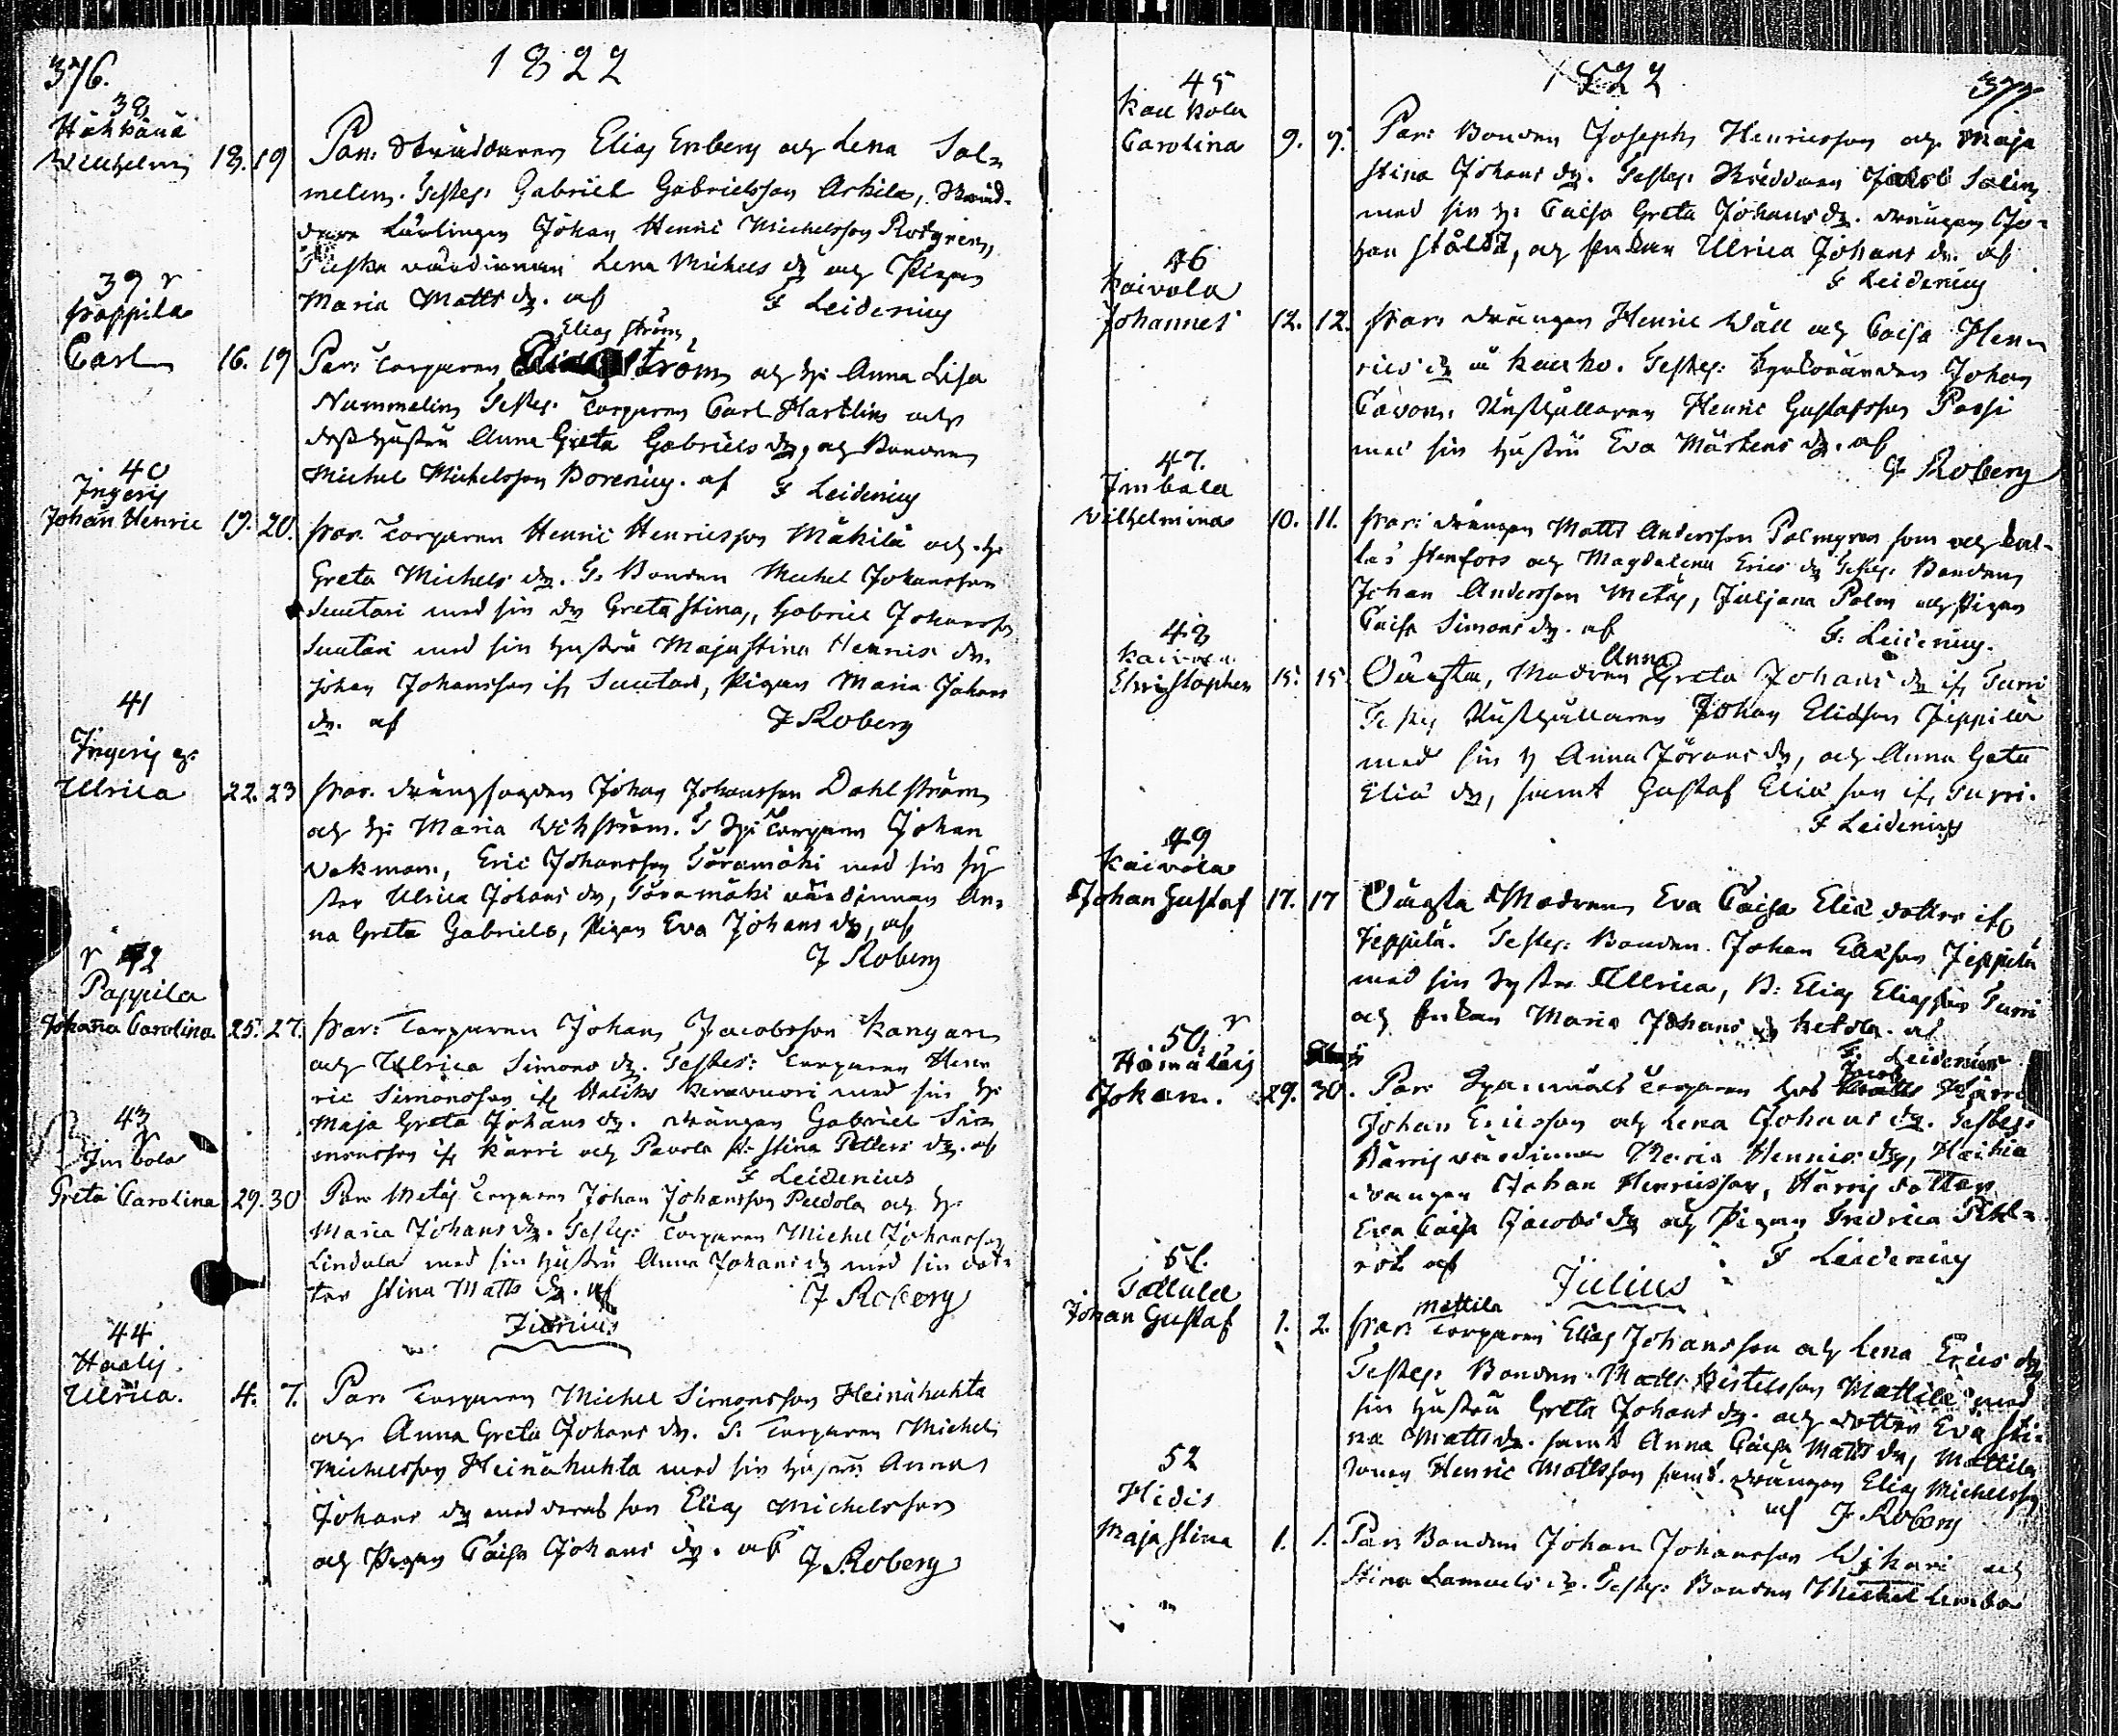 376.
1822
38
Wilhelm 18. 19 Par: Skräddaren Elias Enberg och Lena Sal-
melin. Testes: Gabriel Gabrielsson Arkila, Skräd-
dare Lärlingen Johan Henric Michelsson Rodgren,
värdinnan Lena Michels dr och Pigan
Maria Matts dr. af F Leidenius
39 r
Pappila
Carl 16. 19 Par: Torparen Elias Ström och h: Anna Lisa
Nummelin Testes: Torparen Carl Hartlin och
dess hustru Anna Greta Gabriels dr, och Bonden
Michel Michelsson Borenius. af F Leidenius
40
Ingeris
Johan Henric 19. 20. Par: Torparen Henric Henricsson Mäkilä och h:
Greta Michels dr. T: Bonden Michel Johansson
Suutari med sin dr Greta Stina, Gabriel Johansson
Suutari med sin hustru Maja Stina Henrics dr.
Johan Johansson ifr Suutari, Pigan Maria Johans
dr. af J Roberg
41
Ingeris
Ulrica 22. 23 Par. Johan Johansson Dahlström
och h: Maria Wikström. T Torparen Johan
Eric Johansson Töramäki med sin sy-
ster Ulrica Johans dr, Töramäki värdinnan An-
na Greta Gabriels, Pigan Eva Johans dr, af
J Roberg
r 42
Pappila
Johanna Carolina 25. 27. Par: Torparen Johan Jacobsson Kangar
och Ulrica Simons dr. Testes: Torparen Hen-
ric Simonsson ifr Haliko med sin h:
Maja Greta Johans dr. drängen Gabriel Sim-
onsson ifr Kärri och Pavola Stina Petters dr. af
F Leidenius
43
r
Imbola
Greta Carolina 29. 30 Par: Metäs Torparen Johan Johansson Peldola och h:
Maria Johans dr. Testes: Torparen Michel Johansson
Lindula med sin hustru Anna Johans dr med sin dot-
ter Stina Matts dr. af J Roberg
Junius
44
Haalis
Ulrica. 4. 7. Par: Torparen Michel Simonsson Heinähuhta
och Anna Greta Johans dr. T: Torparen Michel
Michelsson Heinähuhta med sin hustru Anna
Johans dr med deras son Elias Michelsson
och Pigan Caisa Johans dr. af J Roberg
1822
377
45
Kaukola
Carolina 9. 9. Par: Bonden Joseph Henricsson och Maja
Stina Johans dr. Testes: Skräddaren Jakob Salin
med sin h: Caisa Greta Johans dr. drängen Jo-
han Ståldt, och Enkan Ulrica Johans dr. af
F Leidenius
46
Kaivola
Johannes 12. 12. Par: drängen Henric Wäll och Caisa Hen-
rics dr i Kauko. Testes: Johan
Cavon. Rusthållaren Henric Gustafsson Passi
med sin hustru Eva Mårtens dr. af
J Roberg
47.
Imbola
Wilhelmina 10. 11. Par: drängen Matts Andersson Palmgren som och kal-
las Stenfors och Magdalena Erics dr Testes: Bonden
Johan Andersson Metäs, Juljana Palm och Pigan
Caisa Simons dr. af F. Leidenius.
48
Christopher 15. 15. Oäkta, Modren Anna Greta Johans dr ifr Turri
Testes Rusthållaren Johan Eliasson Jeppilä
med sin h Anna Jörans dr, och Anna Greta
Elias dr, samt Gustaf Elias son ifr Turri.
F Leidenius
49
Kaivola
Johan Gustaf 17. 17 Oäkta Modren Eva Caisa Elias dotter ifr
Jeppilä. Testes: Bonden Johan Eliasson Jeppilä
med sin syster Ulrica, B: Elias Eliasson Turri
och Enkan Maria Johans dr Ketola. af
F. Leidenius
50. r
Johan. 29. 30. Par: Torparen hos Jacob Härri
Johan Ericsson och Lena Johans dr. Testes:
Härris värdinna Maria Henrics dr,
drängen Johan Henricsson, Härris dotter
Eva Caisa Jacobs dr och Pigan Fredrica
af F Leidenius
Julius
51.
Tallula
Johan Gustaf 1. 2. Par: Mattila Torparen Elias Johansson och Lena Erics dr
Testes: Bonden Matts Mattila med
sin hustru Greta Johans dr. och dotter Eva Sti-
na Matts dr. samt Anna Caisa Matts dr, Mattila
sonen Henric Mattsson samt drängen Elias Michelsson
af J Roberg
52
Hidis
Maja Stina 1. 1. Par: Bonden Johan Johansson Wikari och
Stina Samuels dr. Testes: Bonden Michel